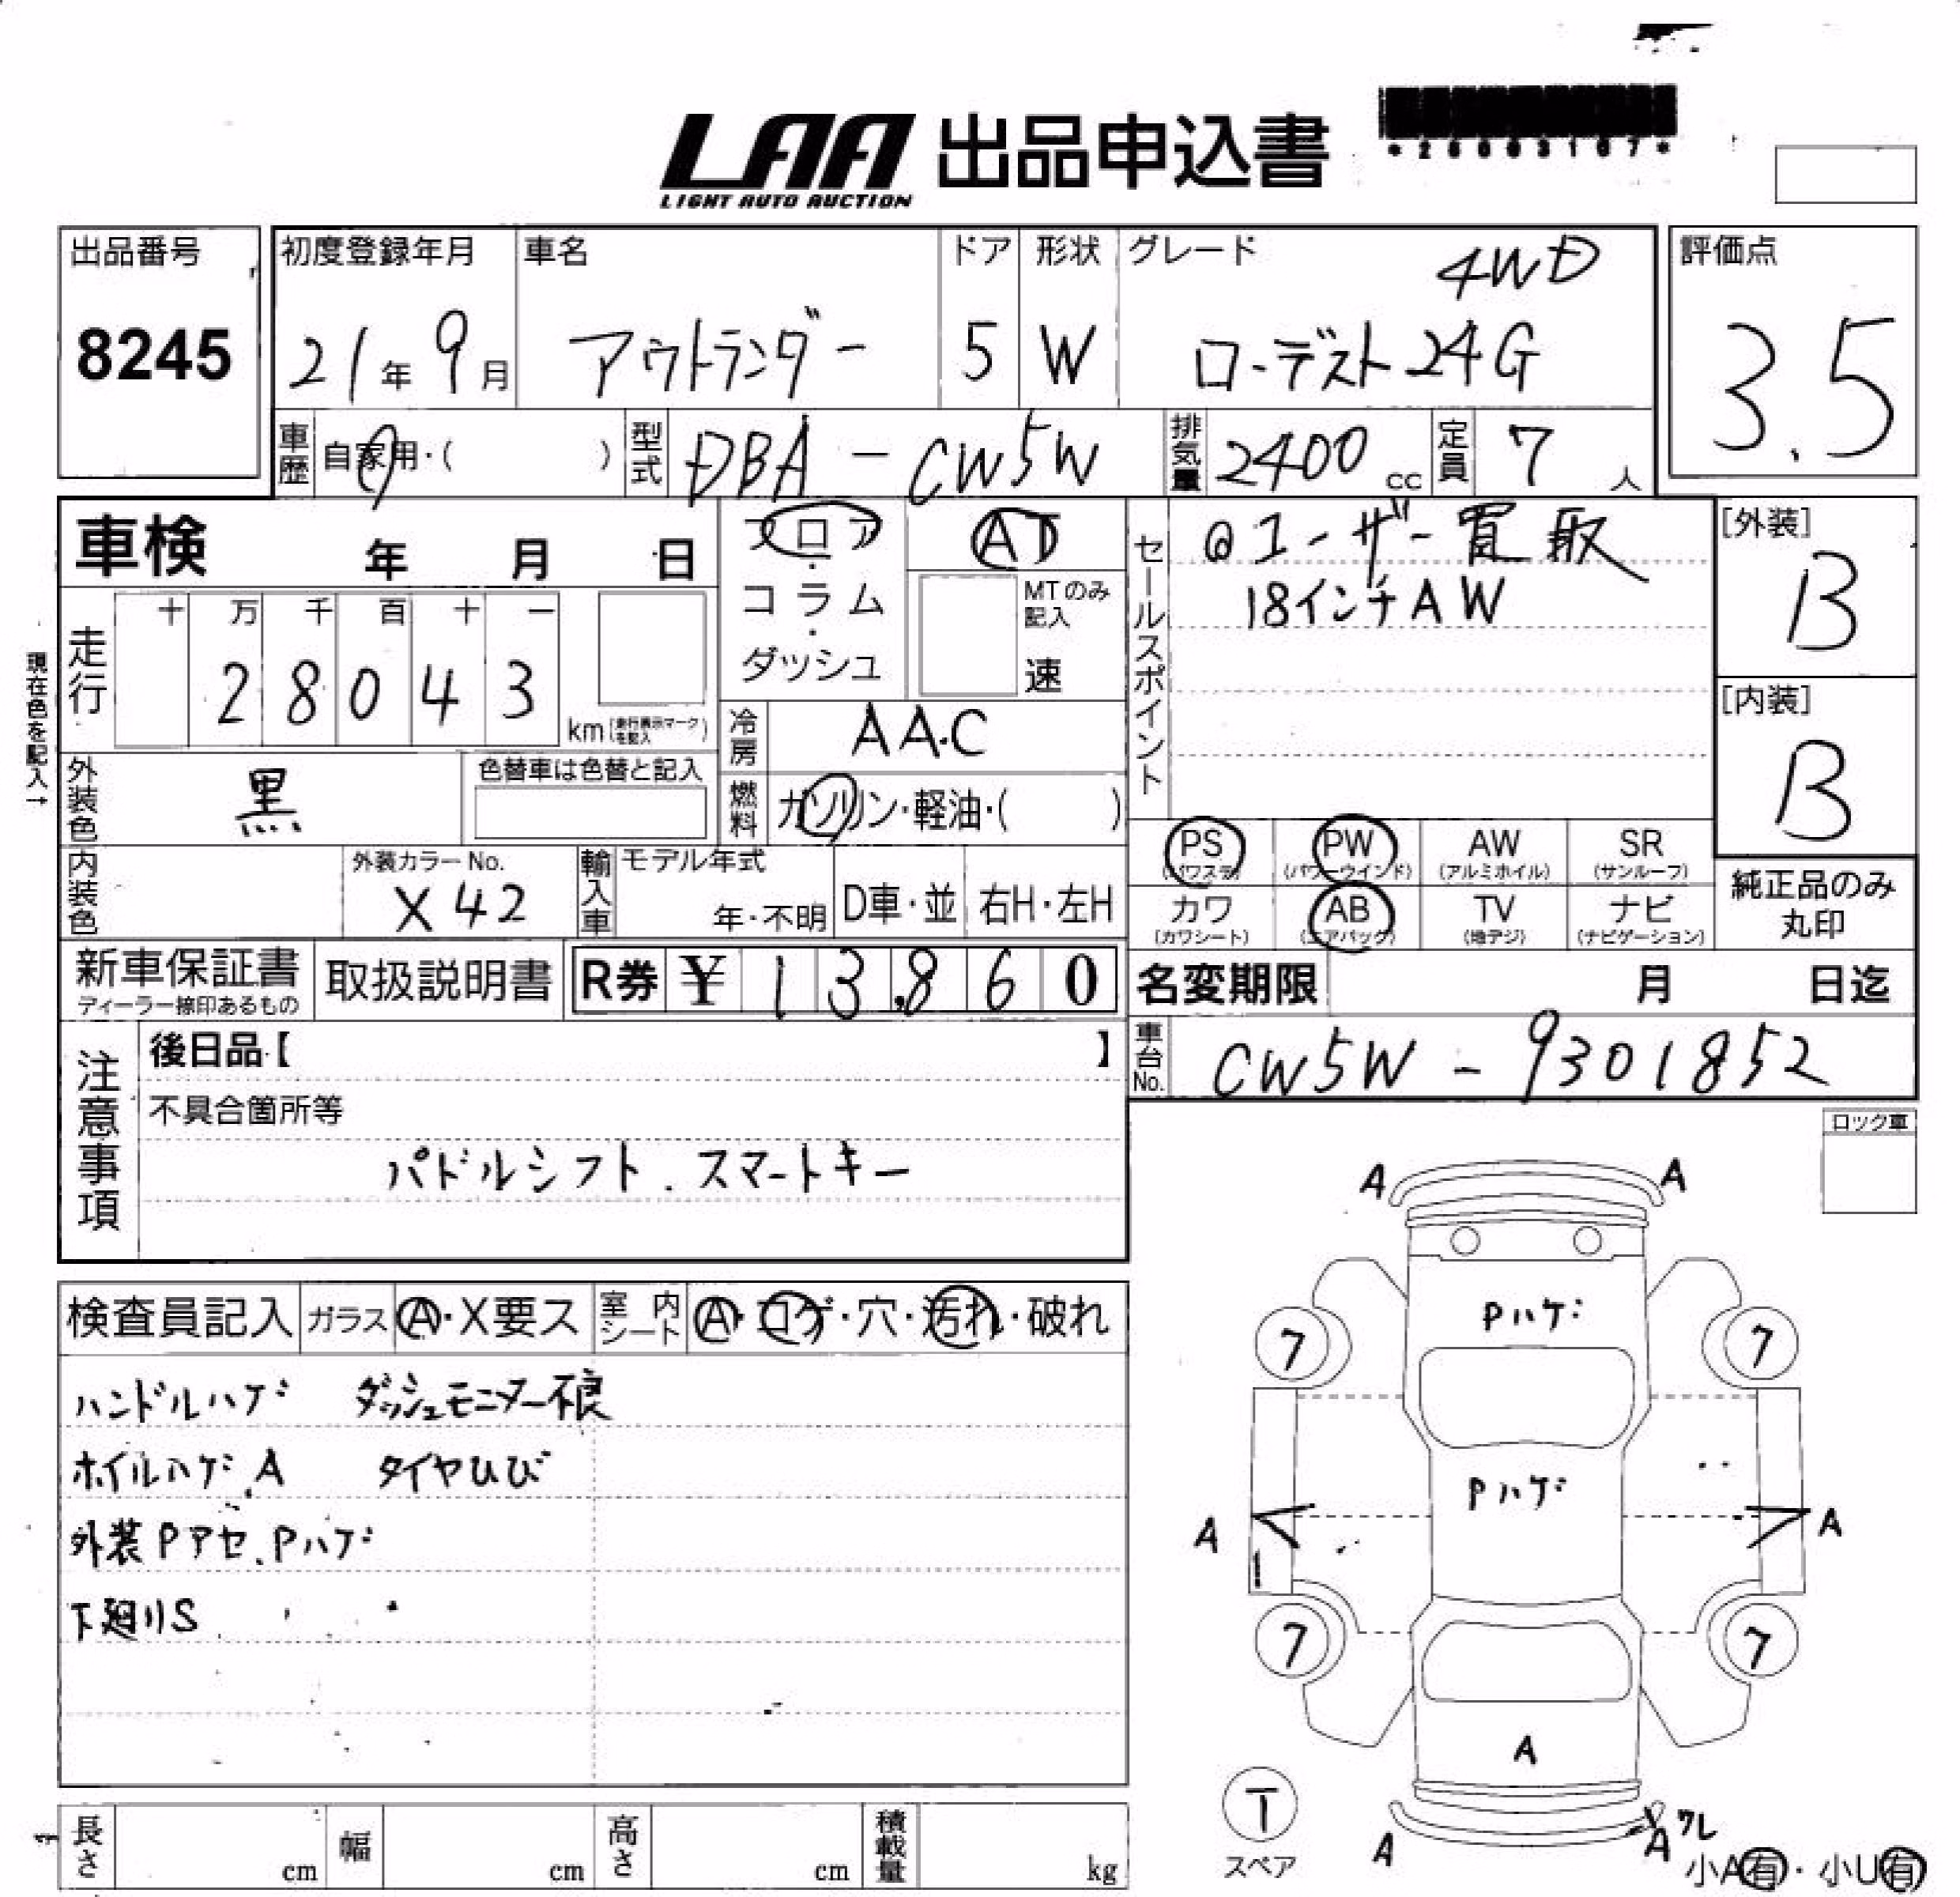 LAA 出品申込書
LIGHT AUTO AUCTION
*26003107*
出品番号
8245
初度登録年月
21年 9月
車名
アウトランダー
ドア
5
形状
W
グレード
4WD
ローデスト24G
評価点
3.5
車歴 自家用・( )
型式 DBA-CW5W
排気量 2400 cc
定員 7 人
車検 年 月 日
フロア・コラム・ダッシュ
AT
MTのみ記入
速
セールスポイント
@ユーザー買取
18インチAW
[外装]
B
[内装]
B
現在色を記入→
走行
十 万 千 百 十 一
2 8 0 4 3
km(走行表示マークを記入)
冷房 AAC
燃料 ガソリン・軽油・( )
外装色 黒
色替車は色替と記入
内装色
外装カラーNo.
X42
輸入車
モデル年式
年・不明
D車・並
右H・左H
PS (パワステ)
PW (パワーウインド)
AW (アルミホイル)
SR (サンルーフ)
カワ (カワシート)
AB (エアバッグ)
TV (地デジ)
ナビ (ナビゲーション)
純正品のみ丸印
新車保証書
ディーラー捺印あるもの
取扱説明書
R券 ¥ 13,860
名変期限 月 日迄
車台No. CW5W-9301852
注意事項
後日品【 】
不具合箇所等
パドルシフト.スマートキー
ロック車
検査員記入
ガラス A・X要ス
室内シート A・コゲ・穴・汚れ・破れ
ハンドルハゲ ダッシュモニター不良
ホイルハゲ.A タイヤひび
外装Pアセ.Pハゲ
下廻りS
A A
Pハゲ
7 7
Pハゲ
A A
7 7
A
T
スペア
A A ワレ
小A有・小U有
長さ cm
幅 cm
高さ cm
積載量 kg